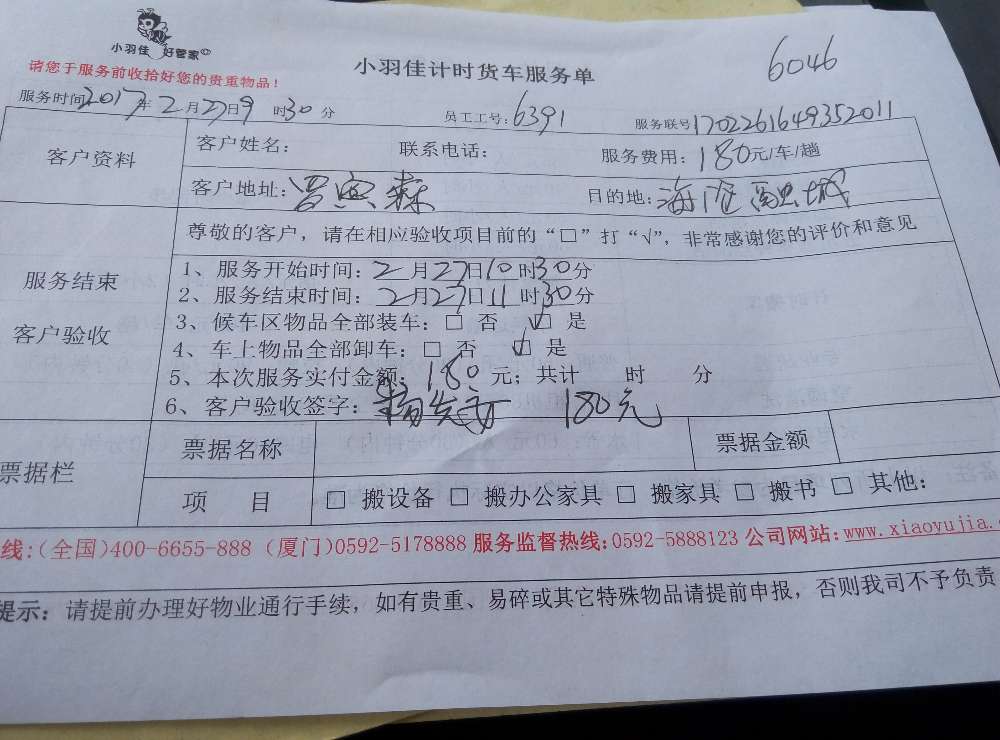 小羽佳 好管家
请您于服务前收拾好您的贵重物品！
小羽佳计时货车服务单
6046
服务时间2017年2月27日9时30分 员工工号：6391 服务联号1702261649352011
客户资料
客户姓名： 联系电话： 服务费用：180元/车/趟
客户地址： 目的地：海沧 城
尊敬的客户，请在相应验收项目前的“□”打“√”，非常感谢您的评价和意见
服务结束
客户验收
1、服务开始时间：2月27日10时30分
2、服务结束时间：2月27日11时30分
3、候车区物品全部装车：□ 否 ☑ 是
4、车上物品全部卸车：□ 否 ☑ 是
5、本次服务实付金额：180元；共计 时 分
6、客户验收签字： 180元
票据栏
票据名称 票据金额
项 目 □ 搬设备 □ 搬办公家具 □ 搬家具 □ 搬书 □ 其他：
线：（全国）400-6655-888（厦门）0592-5178888 服务监督热线：0592-5888123 公司网站：www.xiaoyujia.
提示：请提前办理好物业通行手续，如有贵重、易碎或其它特殊物品请提前申报，否则我司不予负责